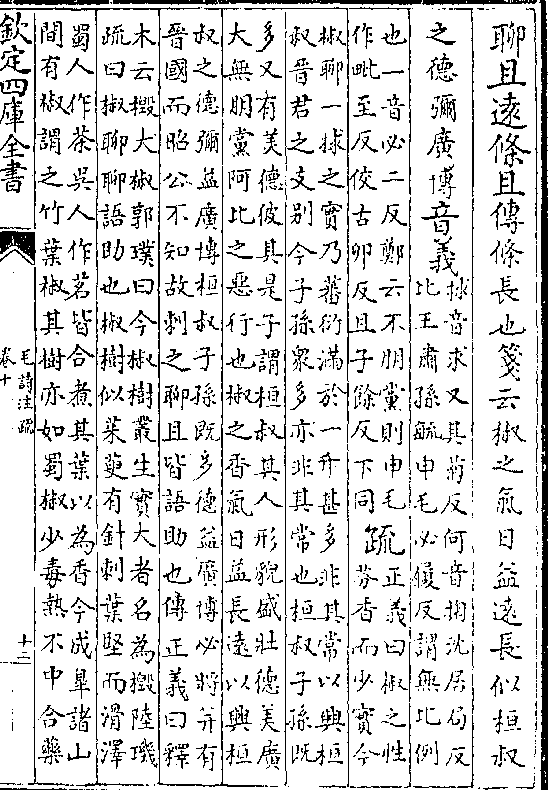 聊且遠條且傳條長也箋云椒之氣日益遠長似桓叔
之德彌廣博音義
捄音求又其菊反何音掬沈居局反
比王肅孫毓申毛必履反謂無比例
也一音必二反鄭云不朋黨則申毛
作毗至反佼古卯反且子餘反下同
疏
正義曰椒之性
芬香而少實今
椒聊一捄之實乃蕃衍滿於一升甚多非其常以興桓
叔晉君之支別今子孫衆多亦非其常也桓叔子孫既
多又有美德彼其是子謂桓叔其人形貌盛壯德美廣
大無朋黨阿比之惡行也椒之香氣日益長遠以興桓
叔之德彌益廣博桓叔子孫既多德益廣博必將并有
晉國而昭公不知故刺之聊且皆語助也傳正義曰釋
木云檓大椒郭璞曰今椒樹叢生實大者名為檓陸璣
疏曰椒聊聊語助也椒樹似茱萸有針刺葉堅而滑澤
蜀人作茶吳人作茗皆合煮其葉以為香今成臯諸山
間有椒謂之竹葉椒其樹亦如蜀椒少毒熱不中合藥
欽定四庫全書
毛詩注疏
卷十